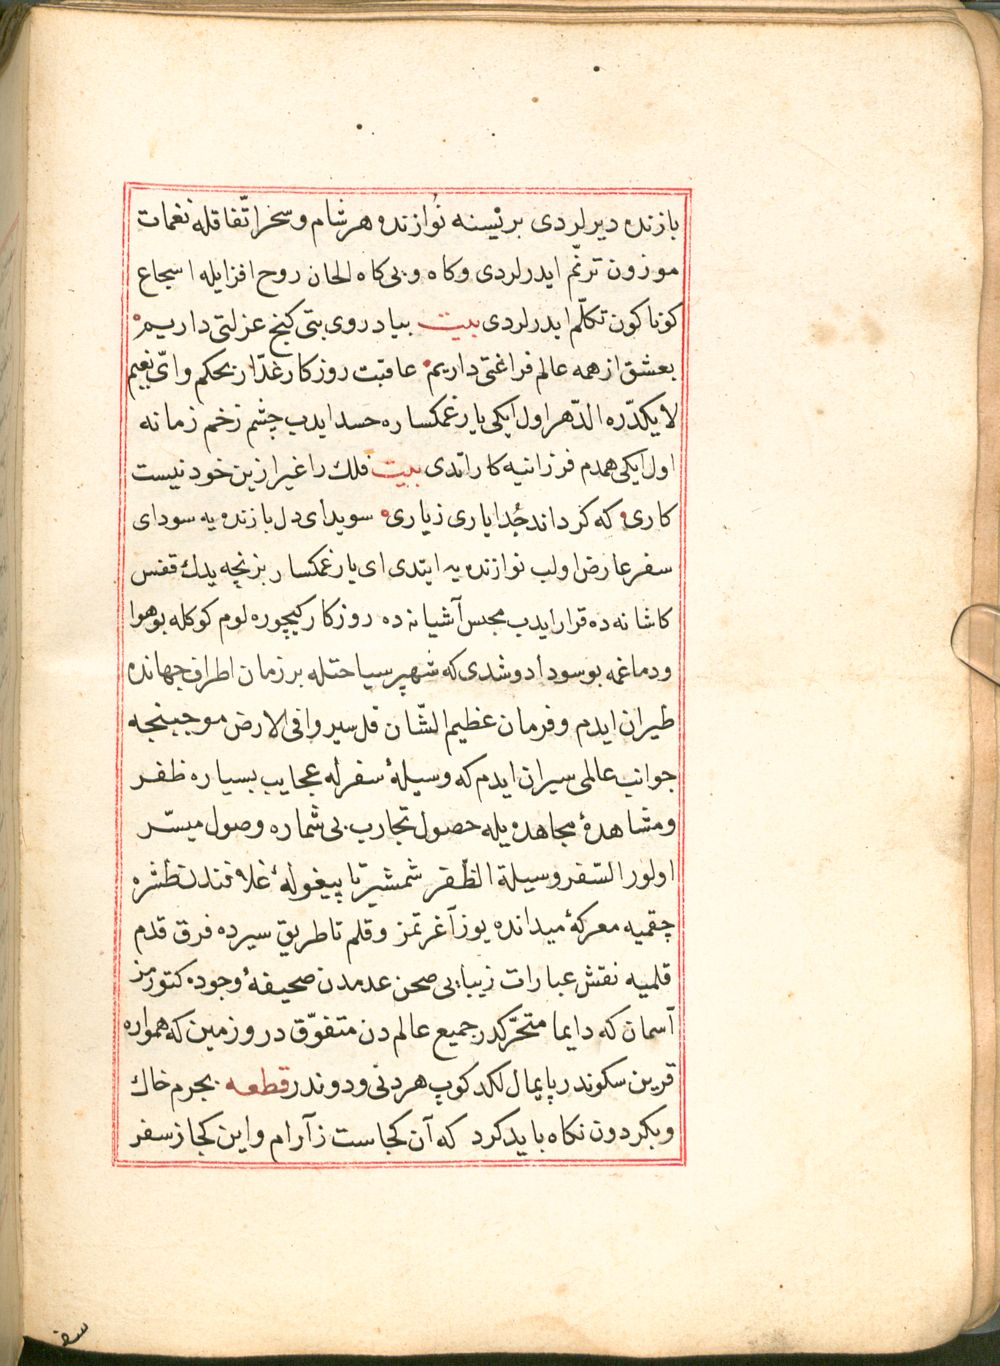 بازنده ديرلردى بريسنه نوازنده هر شام و سحر اتّفاقله نغمات
موزون ترنّم ايدرلردى وكاه و بى كاه الحان روح افزايله اسجاع
كوناكون تكلّم ايدرلردى بيت بياد روى بتى كنج عزلتى داريم
بعشق از همه عالم فراغتى داريم عاقبت روزكار غدّار بحكم واىّ نعيم
لا يكدّره الدّهر اول ايكى يار غمكساره حسد ايدب چشم زخم زمانه
اول ايكى همدم فرزانيه كار اتدى بيت فلك را غير ازين خود نيست
كارى كه كرداند جُدا يارى ز يارى سويداى دل بازنده يه سوداى
سفر عارض اولب نوازنده يه ايتدى اى يار غمكسار بزنچه يدك قفس
كاشانه ده قرار ايدب محبس آشيانه ده روزكار كيچوره لوم كوكله بو هوا
ودماغمه بو سودا دوشدى كه شهپر سياحتله بر زمان اطراف جهانده
طيران ايدم و فرمان عظيم الشّان قل سيروا فى الارض موجبنجه
جوانب عالمى سيران ايدم كه وسيلهٔ سفرله عجايب بسياره ظفر
ومشاهدهٔ مجاهده يله حصول تجارب بى شماره وصول ميسّر
اولور السّفر وسيلة الظّفر شمشير تا پيغولهٔ غلافندن طشره
چقميه معركهٔ ميدانده يوز آغرتمز و قلم تا طريق سيرده فرق قدم
قلميه نقش عبارات زيبايى صحن عدمدن صحيفهٔ وجوده كتورمز
آسمان كه دايما متحرّكدر جميع عالم دن متفوّق در و زمين كه همواره
قرين سكوندر پايمال لكد كوب هر دنى و دوندر قطعه بجرم خاك
وبكردون نكاه بايد كرد كه آن كجاست ز آرام و اين كجا ز سفر
سفر